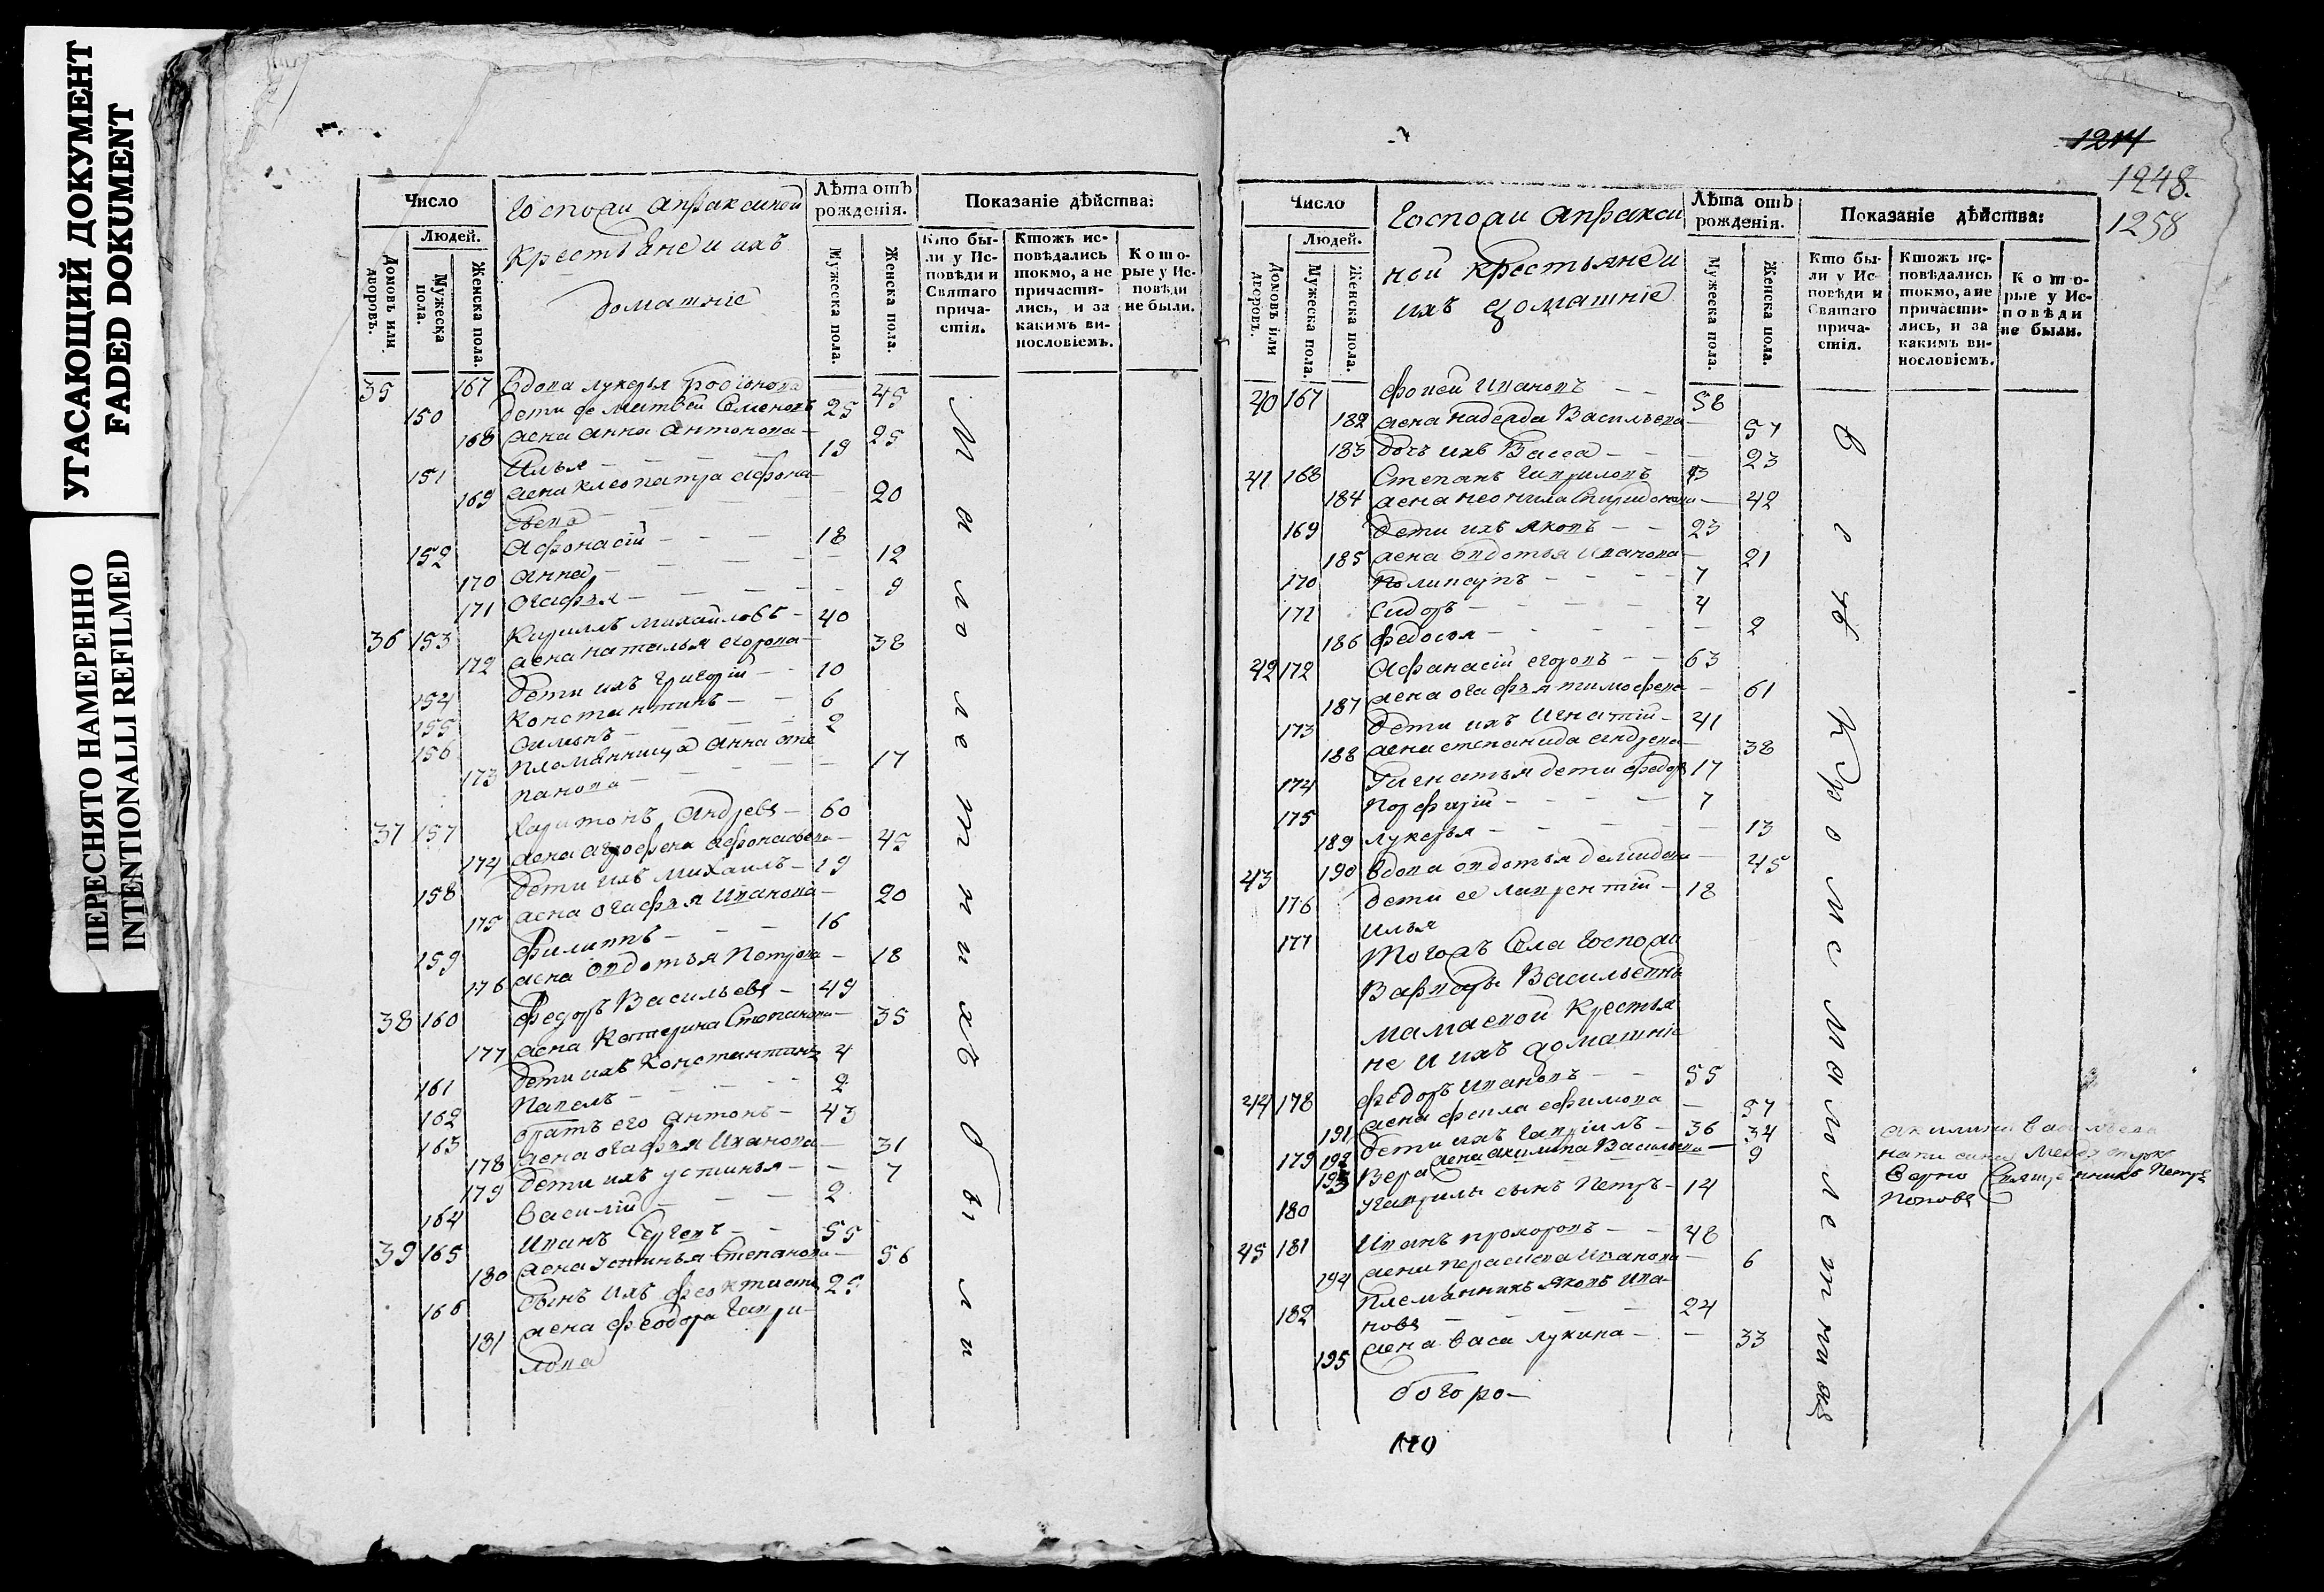 УТАСАЮЩИЙ ДОКУМЕНТ
FADED DOKUMENT
ПЕРЕСНЯТО НАМЕРЕННО
INTENTIONALLI REFILMED
Число
Людей.
Домовъ или дворовъ.
Мужеска пола.
Женска пола.
Госпожи Апраксиной
крестьяне и ихъ
домашніе
Лѣта отъ рожденія.
Мужеска пола.
Женска пола.
Показаніе дѣйства:
Кто бы-
ли у Ис-
повѣди и
Святаго
прича-
стія.
Ктожъ ис-
повѣдались
токмо, а не
причасти-
лись, и за
какимъ ви-
нословіемъ.
Кото-
рые у Ис-
повѣди
не были.
35 167 Вдова лукерья Родіонова 45
150 дети ее Матвей Семеновъ 25
168 жена анна антонова 25
151 Илья 19
169 жена клеопатра Афона-
сьева 20
152 Афонасій 18
170 Анна 12
171 Огафья 9
36 153 Кирилъ михайловъ 40
172 жена наталья егорова 38
154 дети ихъ григорій 10
155 Константинъ 6
156 Симонъ 2
173 племянница Анна сте
панова 17
37 157 Харитонъ Андревъ 60
174 жена аграфена афонасьева 45
158 дети ихъ михаилъ 19
175 жена огафья Иванова 20
159 филиппъ 16
176 жена овдотья Петрова 18
38 160 федоръ Васильевъ 49
177 жена Катерина Степанова 35
161 дети ихъ Константинъ 4
162 Павелъ 2
163 братъ его антонъ 43
178 жена огафья Иванова 31
179 дети ихъ устинья 7
164 василій 2
39 165 Иванъ Сергевъ 55
180 жена устинья Степанова 56
166 сынъ ихъ феоктистъ 25
181 жена феодора гаври-
лова
Малолетнихъ были
1214
1248.
1258
Число
Людей.
Домовъ или дворовъ.
Мужеска пола.
Женска пола.
Госпожи Апракси
ной крестьяне и
ихъ домашніе
Лѣта отъ рожденія.
Мужеска пола.
Женска пола.
Показаніе дѣйства:
Кто бы-
ли у Ис-
повѣди и
Святаго
прича-
стія.
Ктожъ ис-
повѣдались
токмо, а не
причасти-
лись, и за
какимъ ви-
нословіемъ.
Кото-
рые у Ис-
повѣди
не были.
40 167 фокей Ивановъ 58
182 жена надежда Васильева 57
183 дочь ихъ Васса 23
41 168 Степанъ гавриловъ 43
184 жена неонила Спиридонова 42
169 дети ихъ яковъ 23
185 жена овдотья Иванова 21
170 Поликарпъ 7
171 Сидоръ 4
186 федосья 2
42 172 Афанасій егоровъ 63
187 жена огафья тимофева 61
173 дети ихъ Игнатій 41
188 жена степанида андрева 38
174 У игнатья дети федоръ 17
175 порфирій 7
189 лукерья 13
43 190 вдова овдотья демидова 45
176 дети ее лаврентій 18
177 илья
Тогожъ Села Госпожи
Варвары Васильевны
мамаевой крестья
не и ихъ домашніе
44 178 федоръ Ивановъ 55
191 жена фекла ефимова 57
179 дети ихъ гаврилъ 36
192 жена акилина Васильева 34
193 Вера 9
180 У гаврилы сынъ Петръ 14
45 181 Иванъ прохоровъ 48
194 жена парасева Иванова 6
182 племянникъ яковъ ива-
новъ 24
195 жена васа лукина 33
все Кроме Малолетнихъ
акилина васильева
написана Между строкъ
Верно Священникъ Петръ
Поповъ
богоро-
170